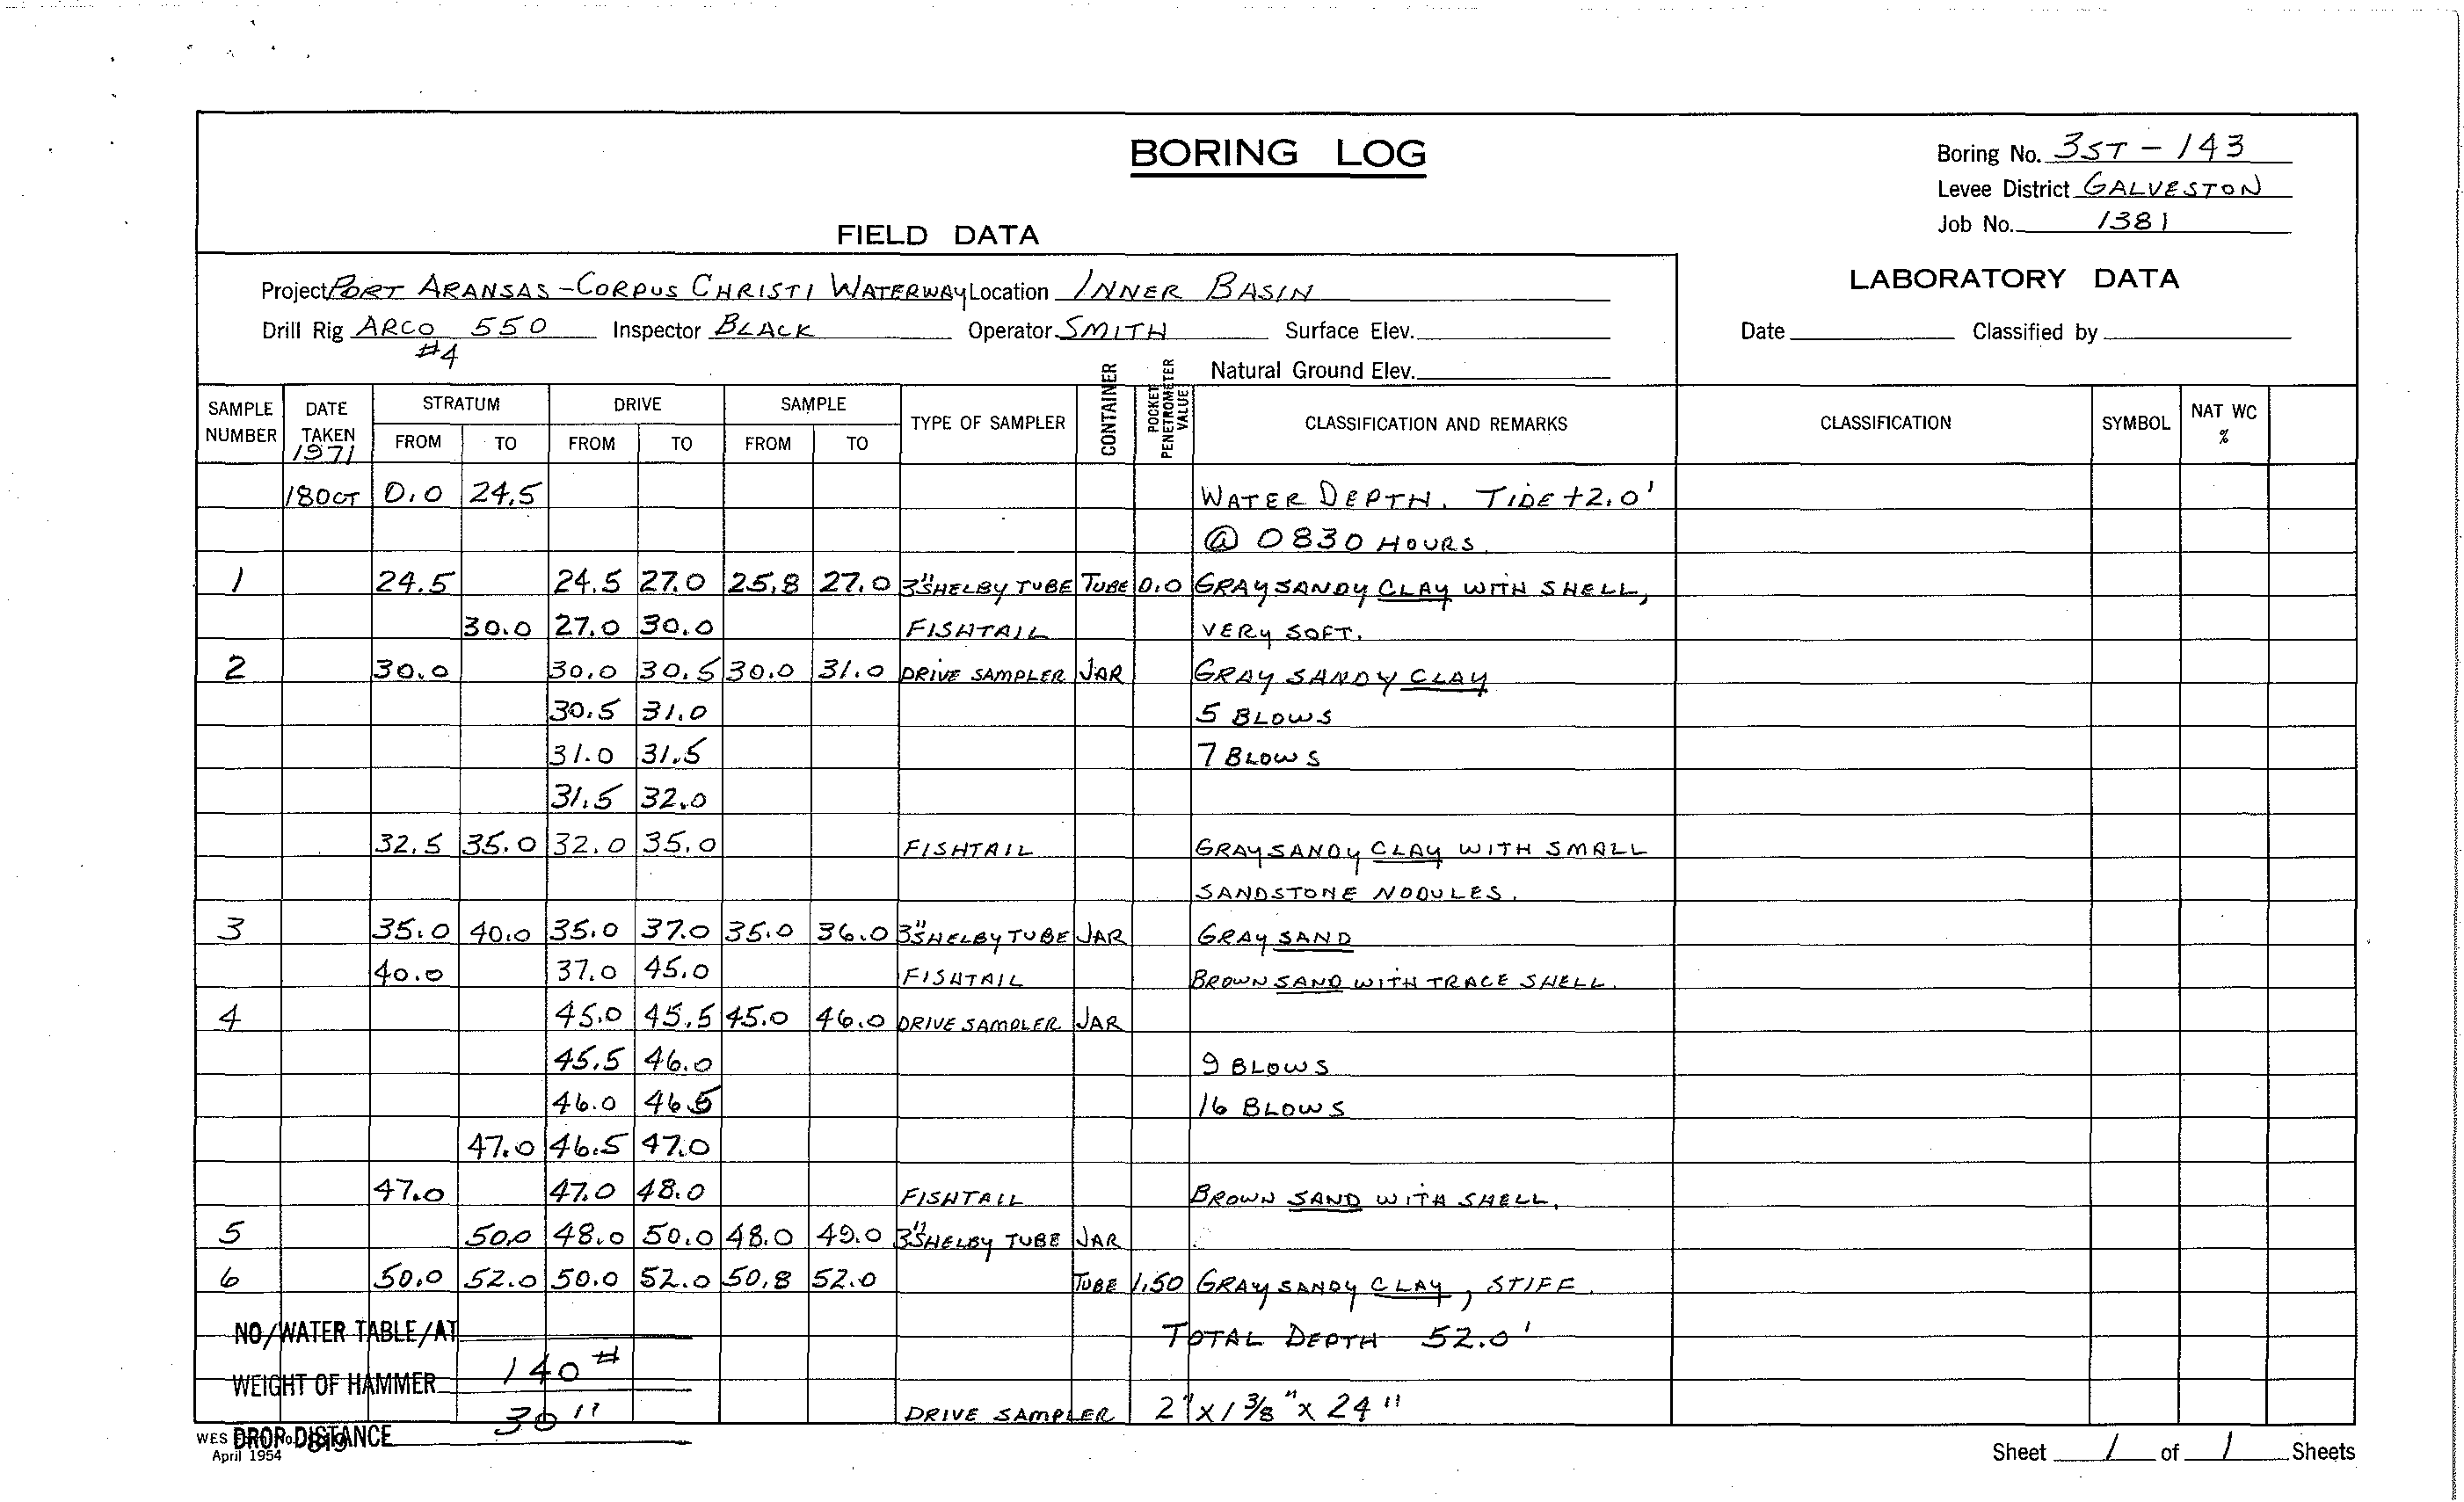 BORING LOG
Boring No. 3ST - 143
Levee District GALVESTON
Job No. 1381
FIELD DATA
LABORATORY DATA
Project PORT ARANSAS - CORPUS CHRISTI WATERWAY Location INNER BASIN
Drill Rig ARCO 550 Inspector BLACK Operator SMITH Surface Elev. Date Classified by
#4
Natural Ground Elev.
SAMPLE NUMBER DATE TAKEN 1971 STRATUM FROM TO DRIVE FROM TO SAMPLE FROM TO TYPE OF SAMPLER CONTAINER POCKET PENETROMETER VALUE CLASSIFICATION AND REMARKS CLASSIFICATION SYMBOL NAT WC %
18 OCT 0.0 24.5 WATER DEPTH. TIDE +2.0'
@ 0830 HOURS.
1 24.5 24.5 27.0 25.8 27.0 3" SHELBY TUBE TUBE 0.0 GRAY SANDY CLAY WITH SHELL,
30.0 27.0 30.0 FISHTAIL VERY SOFT.
2 30.0 30.0 30.5 30.0 31.0 DRIVE SAMPLER JAR GRAY SANDY CLAY
30.5 31.0 5 BLOWS
31.0 31.5 7 BLOWS
31.5 32.0
32.5 35.0 32.0 35.0 FISHTAIL GRAY SANDY CLAY WITH SMALL
SANDSTONE NODULES.
3 35.0 40.0 35.0 37.0 35.0 36.0 3" SHELBY TUBE JAR GRAY SAND
40.0 37.0 45.0 FISHTAIL BROWN SAND WITH TRACE SHELL.
4 45.0 45.5 45.0 46.0 DRIVE SAMPLER JAR
45.5 46.0 9 BLOWS
46.0 46.5 16 BLOWS
47.0 46.5 47.0
47.0 47.0 48.0 FISHTAIL BROWN SAND WITH SHELL.
5 50.0 48.0 50.0 48.0 49.0 3" SHELBY TUBE JAR
6 50.0 52.0 50.0 52.0 50.8 52.0 TUBE 1.50 GRAY SANDY CLAY, STIFF.
NO/WATER TABLE/AT TOTAL DEPTH 52.0'
WEIGHT OF HAMMER 140#
DROP DISTANCE 30" DRIVE SAMPLER 2" x 1 3/8" x 24"
WES
April 1954
Sheet 1 of 1 Sheets